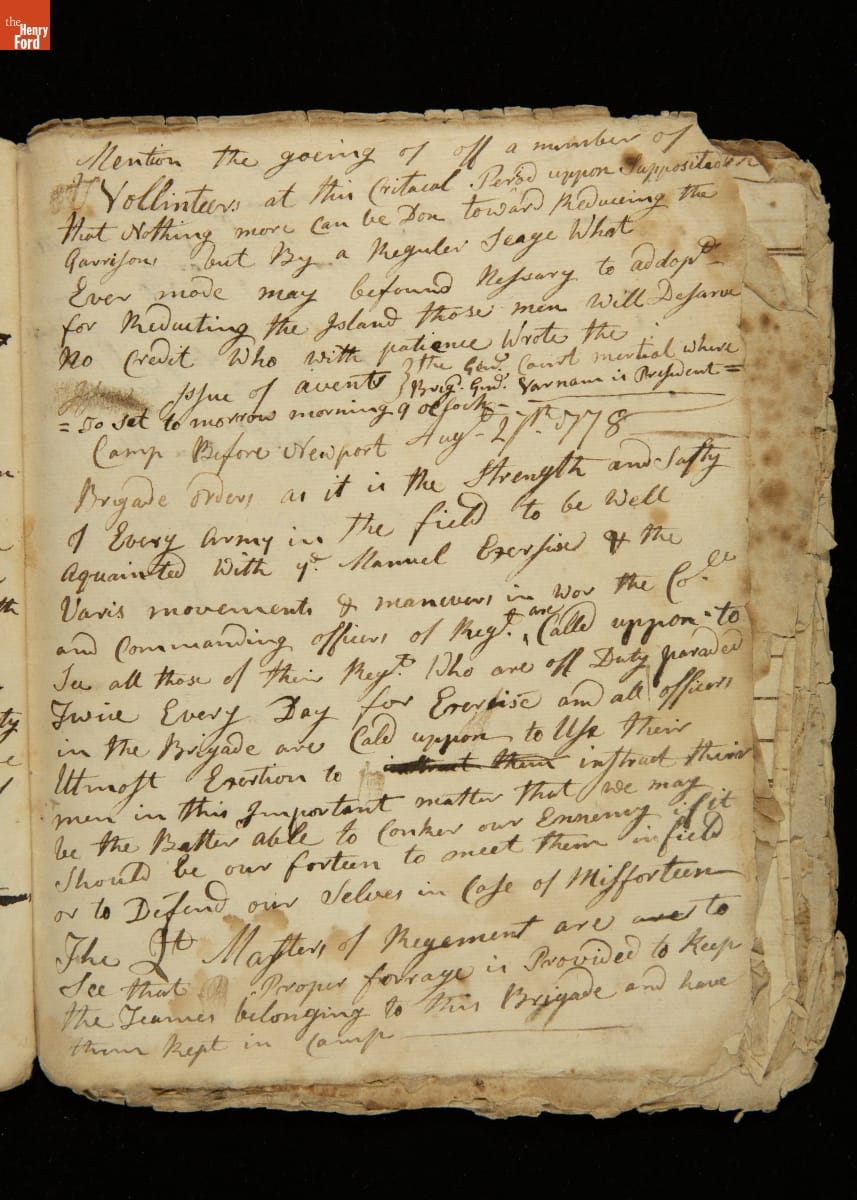 the
Henry
Ford
Mention the goeing of off a number of
Vollinteers at this Critacal Perod uppon Supposition
that Nothing more Can be Don toward Reduceing the
Garrison, but By a Reguler Seage What
Ever mode may befound Nessary to addopd
for Reducting the Island those men Will Desarve
No Credit Who with patience Wrote the
issue of avents } the Genl. Court martial where
Brigr. Genl. Varnam is President =
= to set to morrow morning 9 oClock -
Camp Before Newport Augt 27th 1778
Brigade orders as it is the Strength and Safty
of Every Army in the field to be Well
Aquainted With ye. Manuel Exersise & the
Varis movements & manevers in wor the Colle
and Commanding officers of Regt. are Calld uppon to
See all those of their Regt. Who are off Duty paraded
Twice Every Day for Exercise and all officers
in the Brigade are Cald uppon to Use their
Utmost Exertion to instruct them instruct their
men in this Important matter that we may
be the Batter able to Conker our Ennemy if it
Should be our forteen to meet them in field
or to Defend our Selves in Case of Missforteen
The Qt Masters of Regement are are to
See that Proper forrage is Provided to Keep
the Teames belonging to this Brigade and have
them Kept in Camp